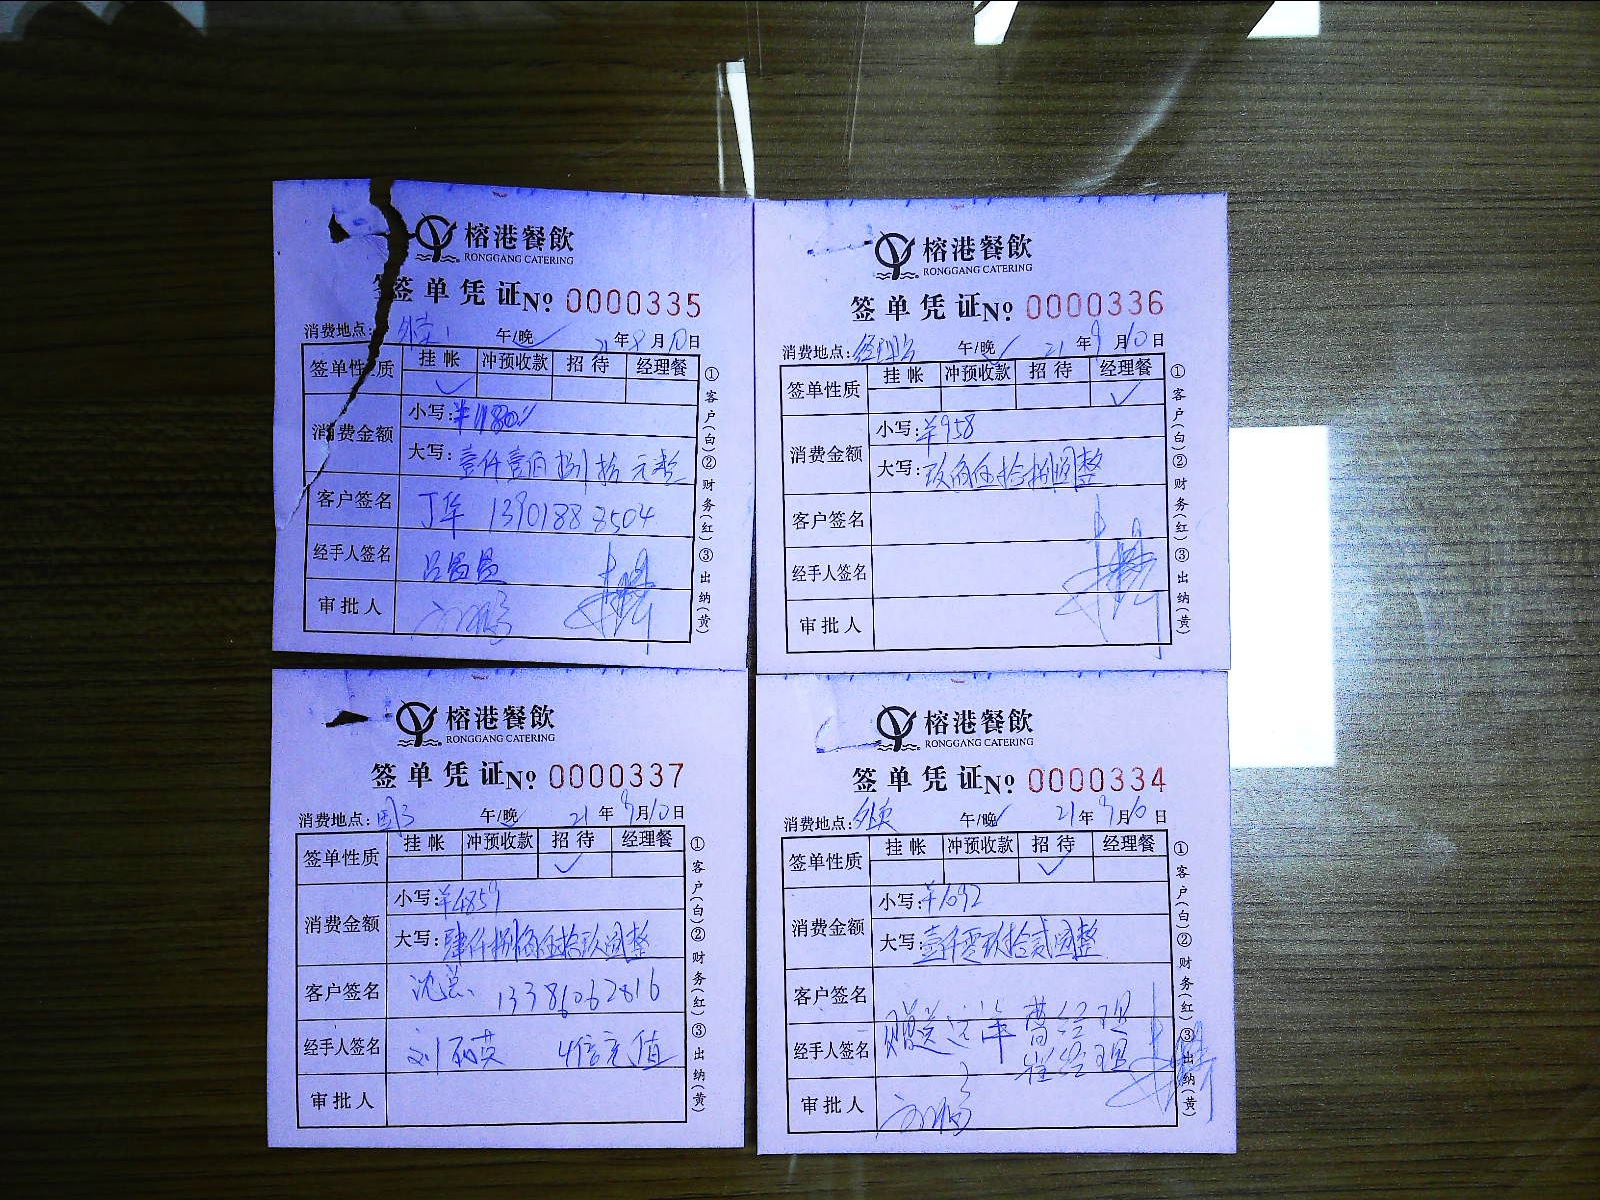 榕港餐飲
RONGGANG CATERING
签单凭证 No 0000335
消费地点: 午/晚 21年9月10日
签单性质 挂帐 冲预收款 招待 经理餐
消费金额 小写:¥1180
大写:壹仟壹佰捌拾元整
客户签名 丁华 13901888504
经手人签名
审批人
①客户(白)②财务(红)③出纳(黄)
榕港餐飲
RONGGANG CATERING
签单凭证 No 0000336
消费地点: 午/晚 21年9月10日
签单性质 挂帐 冲预收款 招待 经理餐
消费金额 小写:¥958
大写:玖佰伍拾捌圆整
客户签名
经手人签名
审批人
①客户(白)②财务(红)③出纳(黄)
榕港餐飲
RONGGANG CATERING
签单凭证 No 0000337
消费地点: 午/晚 21年9月10日
签单性质 挂帐 冲预收款 招待 经理餐
消费金额 小写:¥4859
大写:肆仟捌佰伍拾玖圆整
客户签名 沈总 13386062816
经手人签名 刘丽英 4倍充值
审批人
①客户(白)②财务(红)③出纳(黄)
榕港餐飲
RONGGANG CATERING
签单凭证 No 0000334
消费地点: 午/晚 21年9月10日
签单性质 挂帐 冲预收款 招待 经理餐
消费金额 小写:¥1092
大写:壹仟零玖拾贰圆整
客户签名
经手人签名 赠送 曹经理
崔经理
审批人
①客户(白)②财务(红)③出纳(黄)